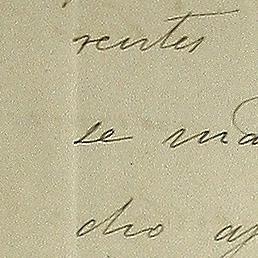 rentes
se ma
cho ap